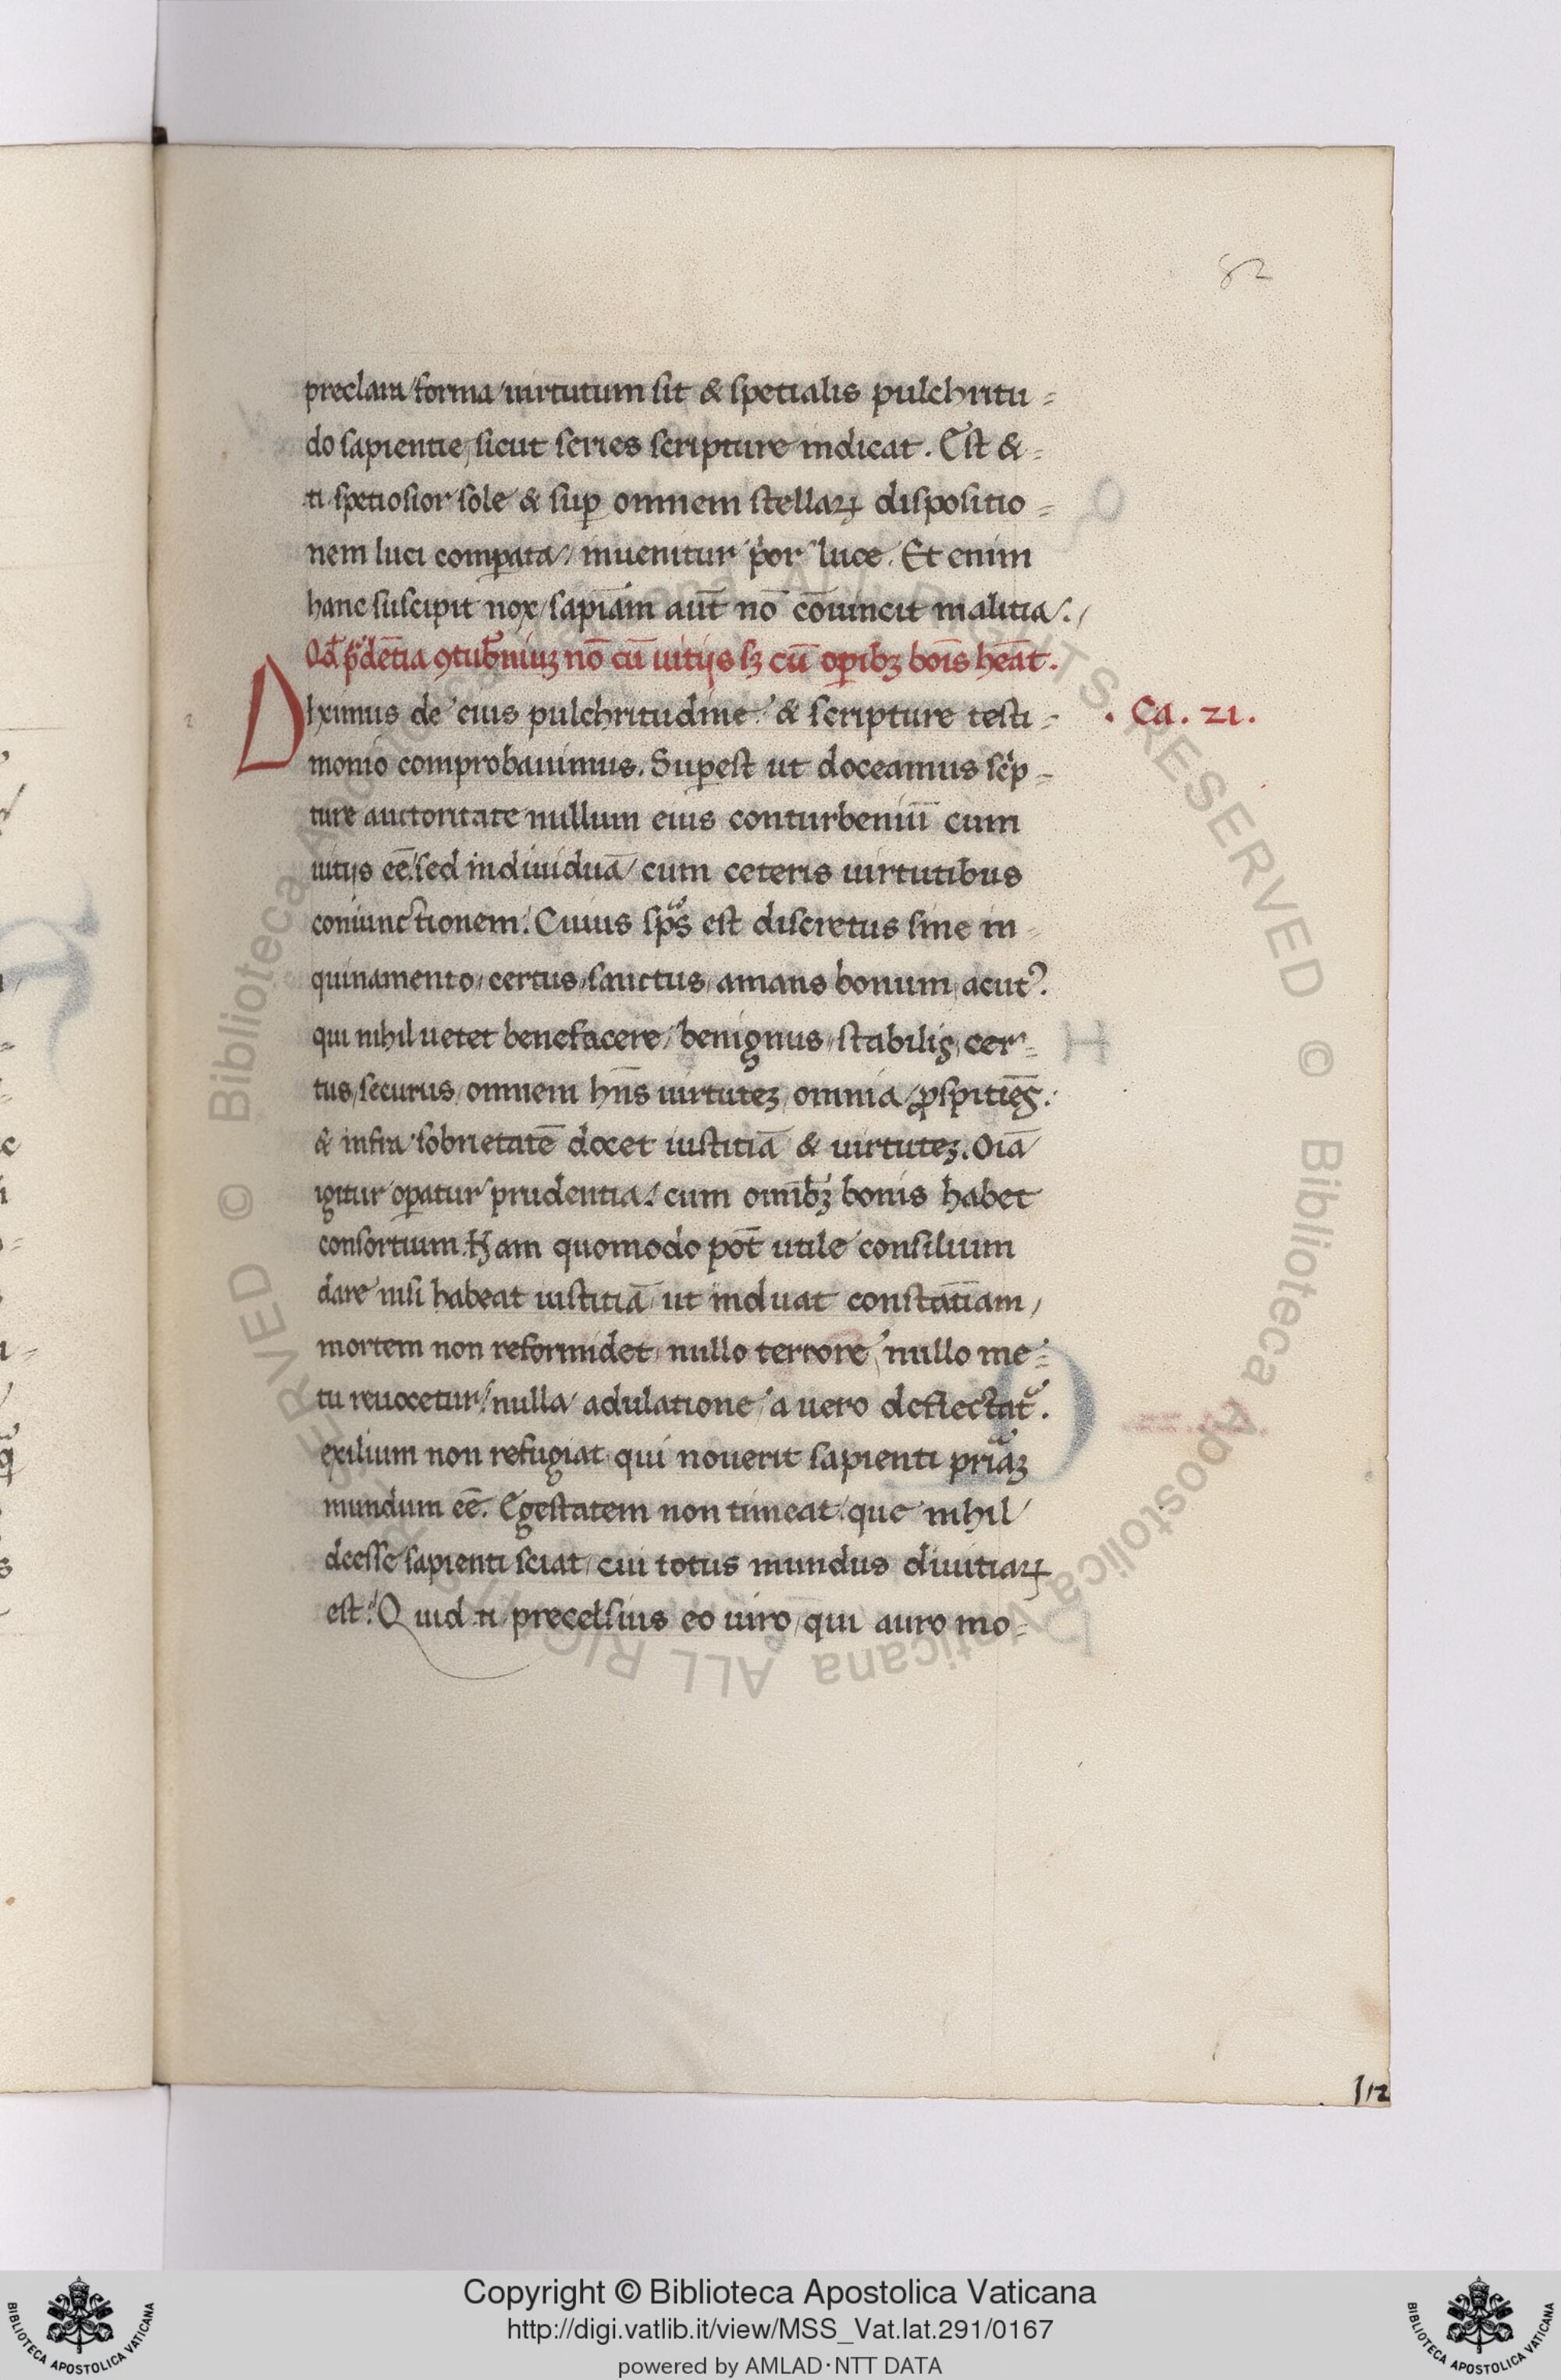 82
preclara forma uirtutum sit & spetialis pulchritu=
do sapientie, sicut series scripture indicat. Est &=
.n. spetiosior sole & sup̱ omnem stellaꝝ dispositio=
nem luci comꝑata, inuenitur pͥor luce. Et enim
hanc suscipit nox, sapiam̄ aut̄ nō cōuincit malitia.
Qđ pͮdētia ꝯtub̄niuꝫ nō cū uitijs sꝫ cū oꝑibꝫ boīs hēat.
DIximus de eius pulchritudine & scripture testi=
· Ca. 21.
monio comprobauimus. Suꝑest ut doceamus scͥp=
ture auctoritate nullum eius conturbeniū cum
uitijs eē, sed indiuiduā cum ceteris uirtutibus
coniunctionem. Cuius sp̄s est discretus sine in=
quinamento, certus, sanctus, amans bonum, acutꝰ.
qui nihil uetet benefacere, benignus, stabilis, cer=
tus, securus, omnem hn̄s uirtuteꝫ, omnia ꝓspitiēs.
& infra sobrietatē docet iustitiā & uirtuteꝫ. Oīa
igitur oꝑatur prudentia, cum omībꝫ bonis habet
consortium. Nam quomodo pōt utile consilium
dare nisi habeat iustitiā, ut induat constātiam,
mortem non reformidet, nullo terrore, nullo me=
tu reuocetur, nulla adulatione a uero deflectat᷑.
exilium non refugiat qui nouerit sapienti priaꝫ
mundum eē. Egestatem non timeat, que nihil
deesse sapienti sciat, cui totus mundus diuitiaꝝ
est. Quid .n. precelsius eo uiro, qui auro mo=
112
© Biblioteca Apostolica Vaticana ALL RIGHTS RESERVED
© Biblioteca Apostolica Vaticana ALL RIGHTS RESERVED
Copyright © Biblioteca Apostolica Vaticana
http://digi.vatlib.it/view/MSS_Vat.lat.291/0167
powered by AMLAD·NTT DATA
BIBLIOTECA APOSTOLICA VATICANA
BIBLIOTECA APOSTOLICA VATICANA